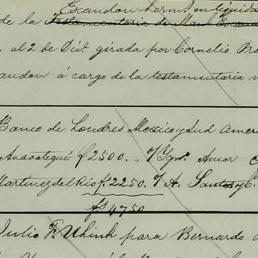 Escandon herms. en liquida
de la Testamentaria de Man. Escan
al 2 de Dic. girada por Cornelio Pra
candon á cargo de la testamentaria
Banco de Londres Mexico y Sud Amer
Ansoategui £2500.. O/ Ygn. Amor
Martinez del Rio £2250. O/ A. Santos y C.
£4750
Julio F. Uhink para Bernardo